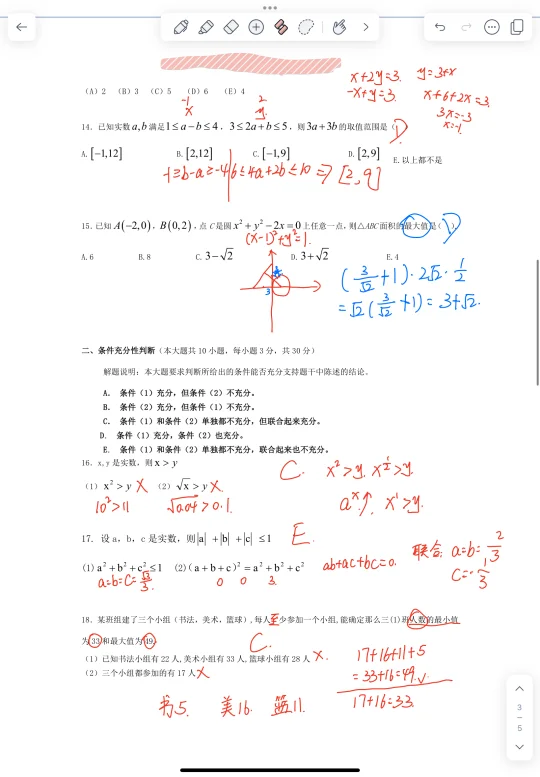 (A) 2 (B) 3 (C) 5 (D) 6 (E) 4
x+2y=3. y=3+x
-x+y=3. x+6+2x=3
3x=-3
x=-1.
-1 2
x y.
14. 已知实数a,b满足1≤a−b≤4，3≤2a+b≤5，则3a+3b的取值范围是（D.
A.[−1,12] B.[2,12] C.[−1,9] D.[2,9] E.以上都不是
-1≥b-a≥-4 6≤4a+2b≤10 ⇒ [2,9]
15. 已知A(−2,0)，B(0,2)，点C是圆x²+y²−2x=0上任意一点，则△ABC面积的最大值是( D )
(x-1)²+y²=1.
A.6 B.8 C.3−√2 D.3+√2 E.4
(3/√2+1)·2√2·1/2
=√2(3/√2+1)=3+√2.
3
二、条件充分性判断（本大题共10小题，每小题3分，共30分）
解题说明：本大题要求判断所给出的条件能否充分支持题干中陈述的结论。
A. 条件（1）充分，但条件（2）不充分。
B. 条件（2）充分，但条件（1）不充分。
C. 条件（1）和条件（2）单独都不充分，但联合起来充分。
D. 条件（1）充分，条件（2）也充分。
E. 条件（1）和条件（2）单独都不充分，联合起来也不充分。
16. x,y是实数，则x>y
C. x²>y. x^½>y.
（1）x²>y X （2）√x>y X.
10²>11 √0.04>0.1. a^x↗, x¹>y.
17. 设a，b，c是实数，则|a|+|b|+|c|≤1 E.
(1)a²+b²+c²≤1 (2)(a+b+c)²=a²+b²+c²
a=b=c=√3/3. 0 0 3. ab+ac+bc=0. 联合: a=b=2/3
c=-1/3
18. 某班组建了三个小组（书法，美术，篮球）,每人至少参加一个小组,能确定那么三(1)班人数的最小值
为33和最大值为49.
C.
（1）已知书法小组有22人,美术小组有33人,篮球小组有28人 X.
（2）三个小组都参加的有17人 X
17+16+11+5
=33+16=49.✓.
17+16=33.
书5. 美16. 篮11.
3
–
5